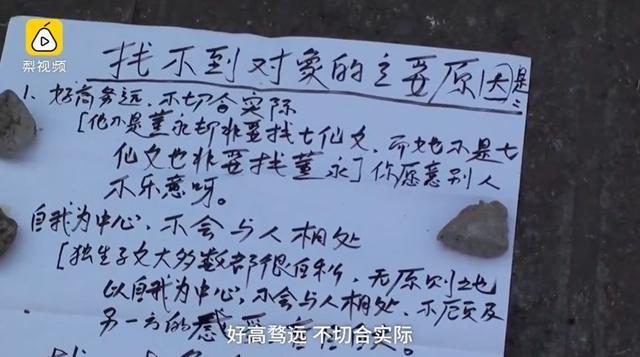 梨视频
找不到对象的主要原因是:
1. 好高务远、不切合实际
[他不是董永却非要找七仙女,而她不是七
仙女也非要找董永]你愿意别人
不乐意呀。
自我为中心,不会与人相处
[独生子女大多数都很自私,无原则地
以自我为中心,不会与人相处,不顾及
另一方的感受
好高骛远 不切合实际